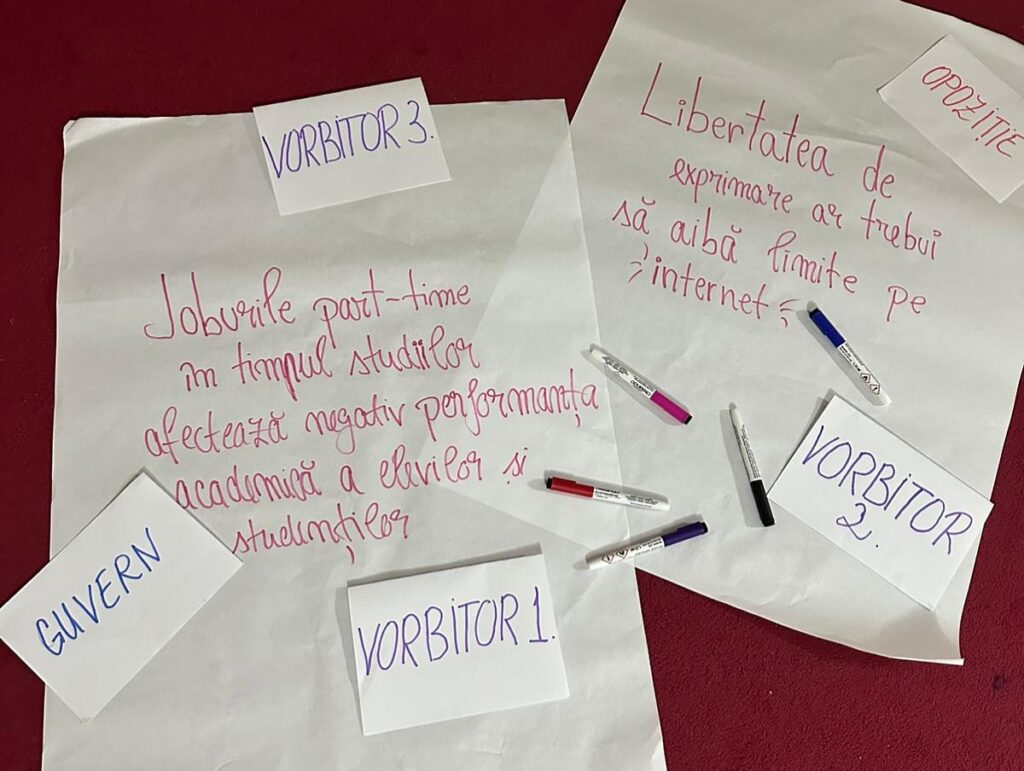 VORBITOR 3.
Joburile part-time
în timpul studiilor
afectează negativ performanța
academică a elevilor și
studenților
GUVERN
VORBITOR 1.
OPOZIȚIE
Libertatea de
exprimare ar trebui
să aibă limite pe
internet
VORBITOR
2.